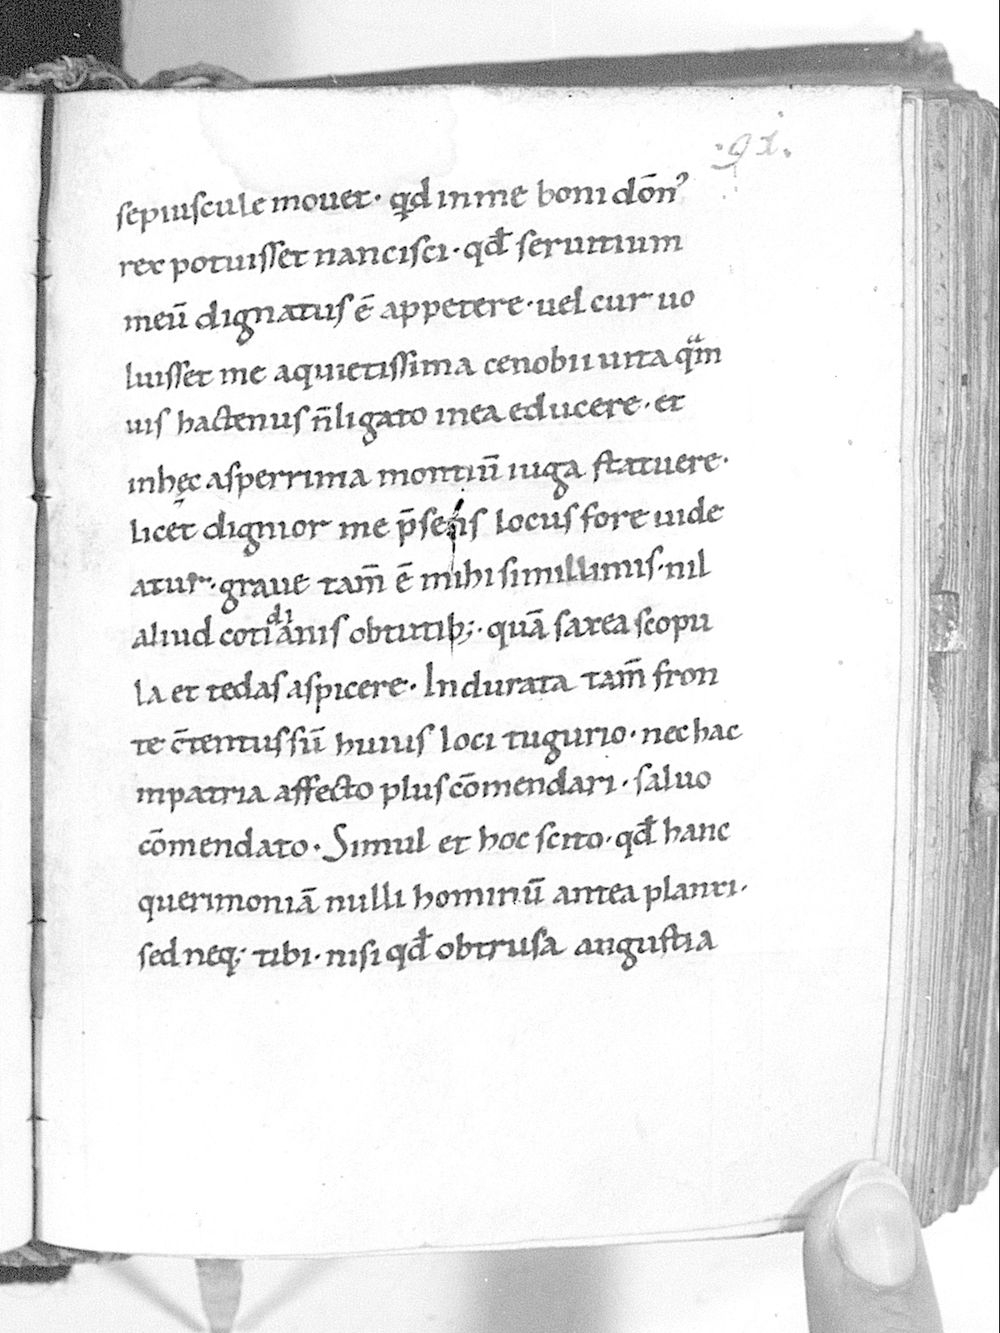 .91.
sepiuscule mouet· qd in me boni dōn⁹
rex potuisset nancisci· qđ seruitium
meū dignatus ē appetere· uel cur uo
luisset me a quietissima cenobii uita qͣm
uis hactenus n̄ ligato in ea educere· et
in hęc asperrima montiū iuga statuere·
licet dignior me p̄sens locus fore uide
atur· graue tam̄ ē mihi simillimis· nil
aliud cotidianis obtutib;· quā saxea scopu
la et tedas aspicere· Indurata tam̄ fron
te c̄tentus sū huius loci tugurio· nec hac
in patria affecto plus cōmendari· saluo
cōmendato· Simul et hoc scito· qđ hanc
querimoniā nulli hominū antea planxi·
sed neq; tibi· nisi qđ obtrusa angustia